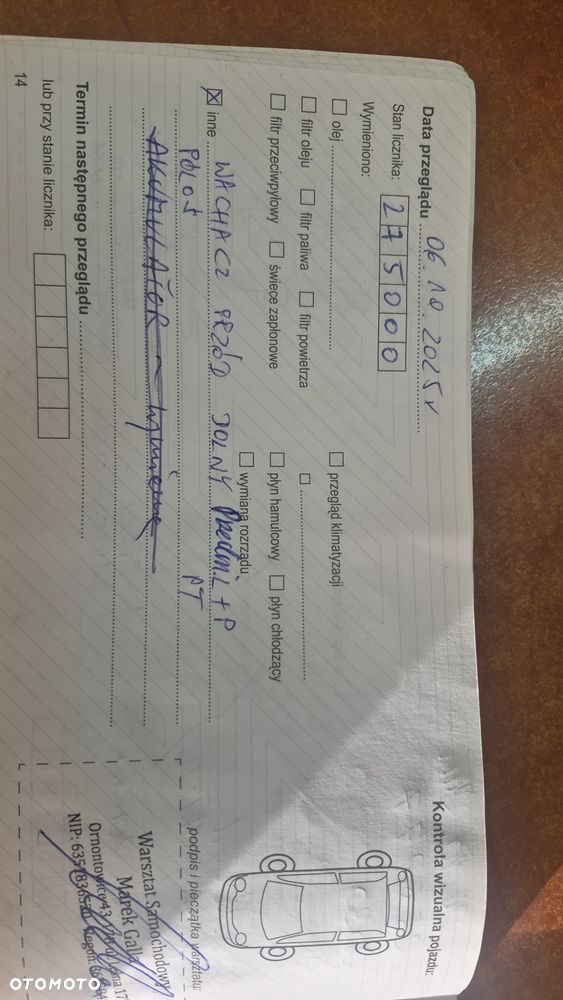 Data przeglądu 06.10.2025r
Stan licznika: 275000
Wymieniono:
olej
przegląd klimatyzacji
filtr oleju filtr paliwa filtr powietrza
filtr przeciwpyłowy świece zapłonowe
płyn hamulcowy płyn chłodzący
wymiana rozrządu
inne WACHACZ PRZÓD DOLNY Przedni L + P
PDLOŚ PT
AKUMULATOR - wymiana
Termin następnego przeglądu
lub przy stanie licznika:
14
Kontrola wizualna pojazdu:
podpis i pieczątka warsztatu:
Warsztat Samochodowy
Marek Galla
Ornontowice 43
NIP: 635
OTOMOTO